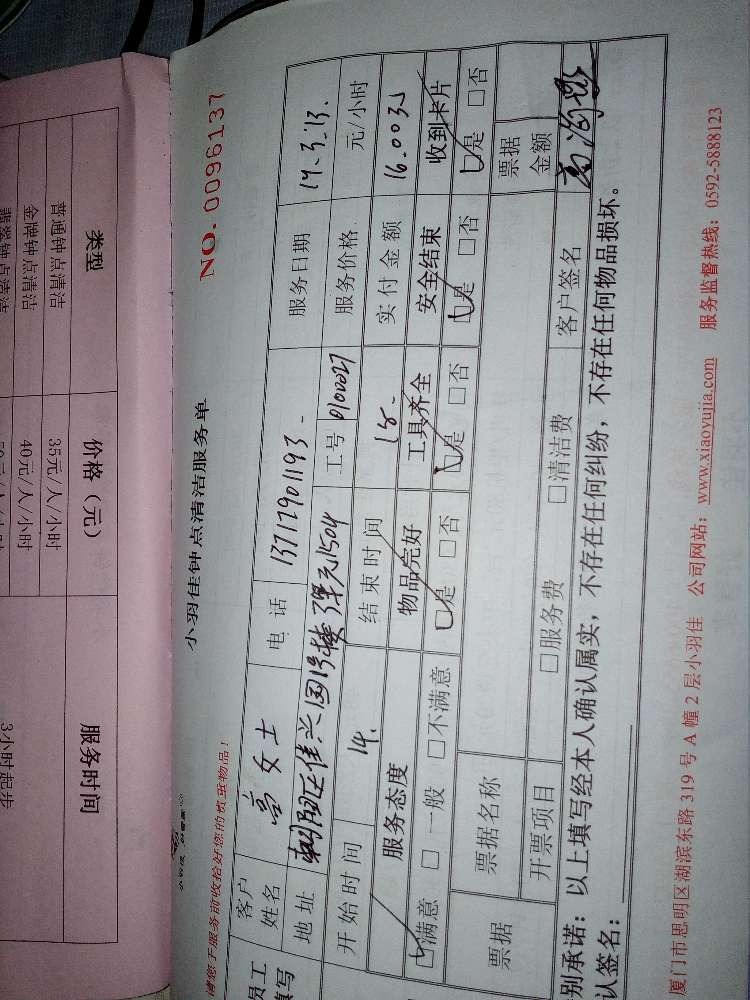 类型 价格（元） 服务时间
普通钟点清洁 35元/人/小时 3小时起步
金牌钟点清洁 40元/人/小时
NO. 0096137
小羽佳钟点清洁服务单
请您于服务前收拾好您的贵重物品！
客户姓名 高女士 电话 13717901193 服务日期 19.3.13.
地址 朝阳区佳兴园15楼3单元1504 工号 0100027 服务价格 元/小时
开始时间 14. 结束时间 18. 实付金额 16.003L
服务态度 物品完好 工具齐全 安全结束 收到卡片
☑满意 □一般 □不满意 ☑是 □否 ☑是 □否 ☑是 □否 ☑是 □否
票据 票据名称 票据金额
开票项目 □服务费 □清洁费 客户签名
别承诺：以上填写经本人确认属实，不存在任何纠纷，不存在任何物品损坏。
认签名：
厦门市思明区湖滨东路 319 号 A 幢 2 层小羽佳 公司网站：www.xiaoyujia.com 服务监督热线：0592-5888123